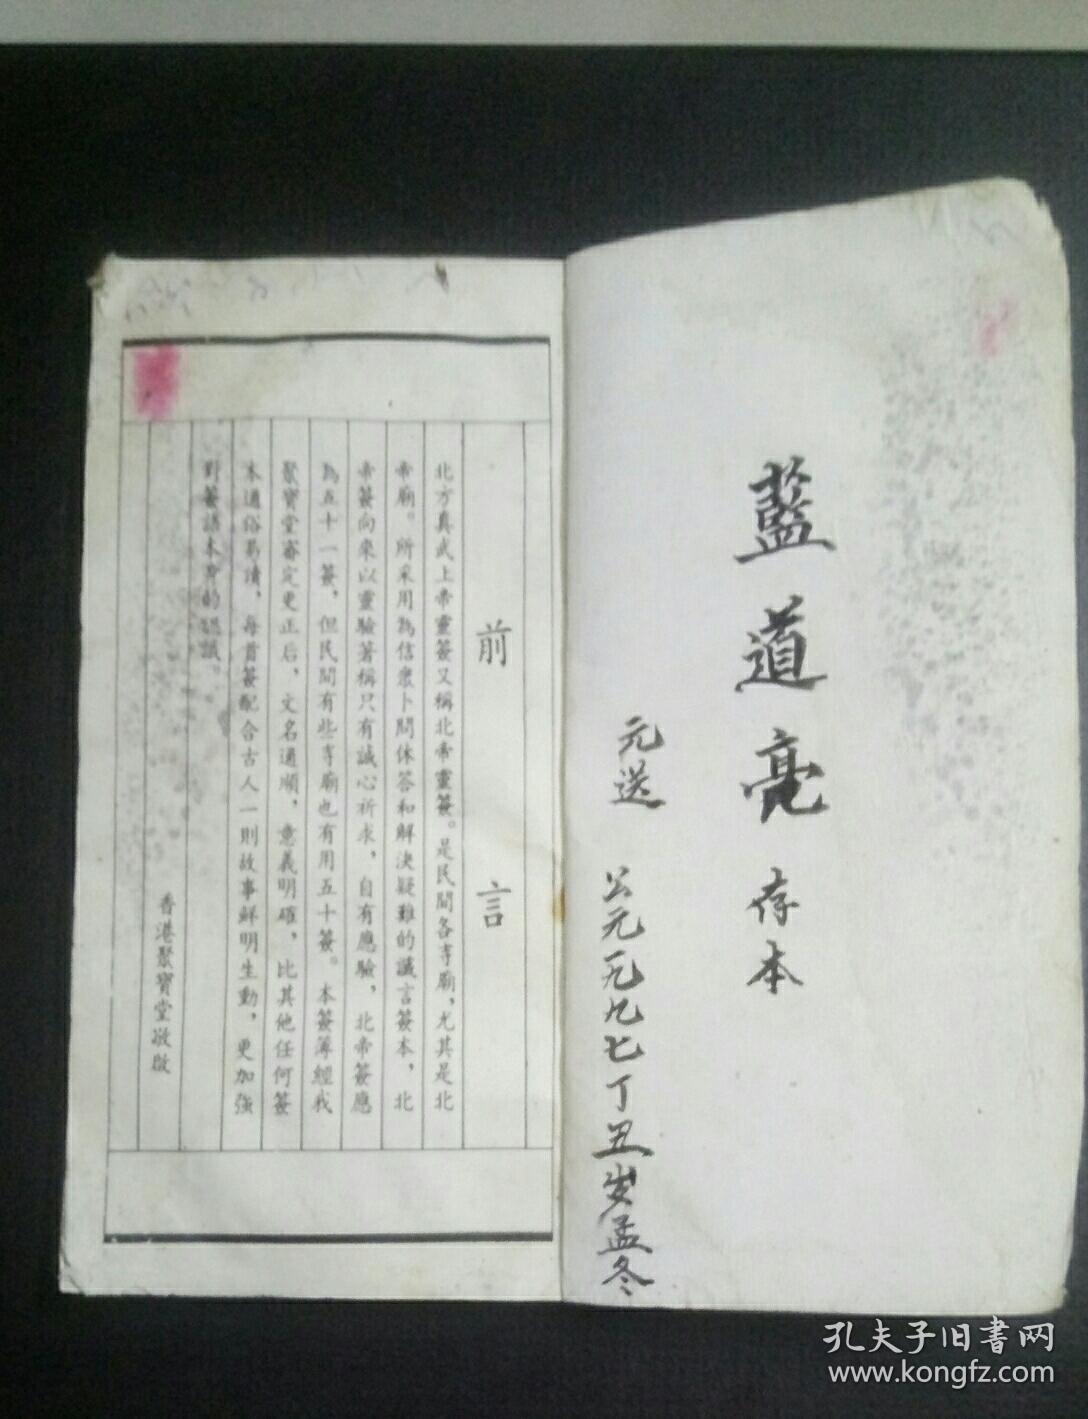 藍道亮存本
元送
公元一九九七丁丑岁孟冬
前言
北方真武上帝靈簽又稱北帝靈簽。是民間各寺廟,尤其是北
帝廟。所采用為信衆卜問休答和解決疑難的讖言簽本,北
帝簽向來以靈驗著稱只有誠心祈求,自有應驗,北帝簽應
為五十一簽,但民間有些寺廟也有用五十簽。本簽薄經我
聚寶堂審定更正后,文名通順,意義明確,比其他任何簽
本通俗易讀,每首簽配合古人一則故事鮮明生動,更加強
對簽語本身的認識。
香港聚寶堂敬啟
孔夫子旧書网
www.kongfz.com